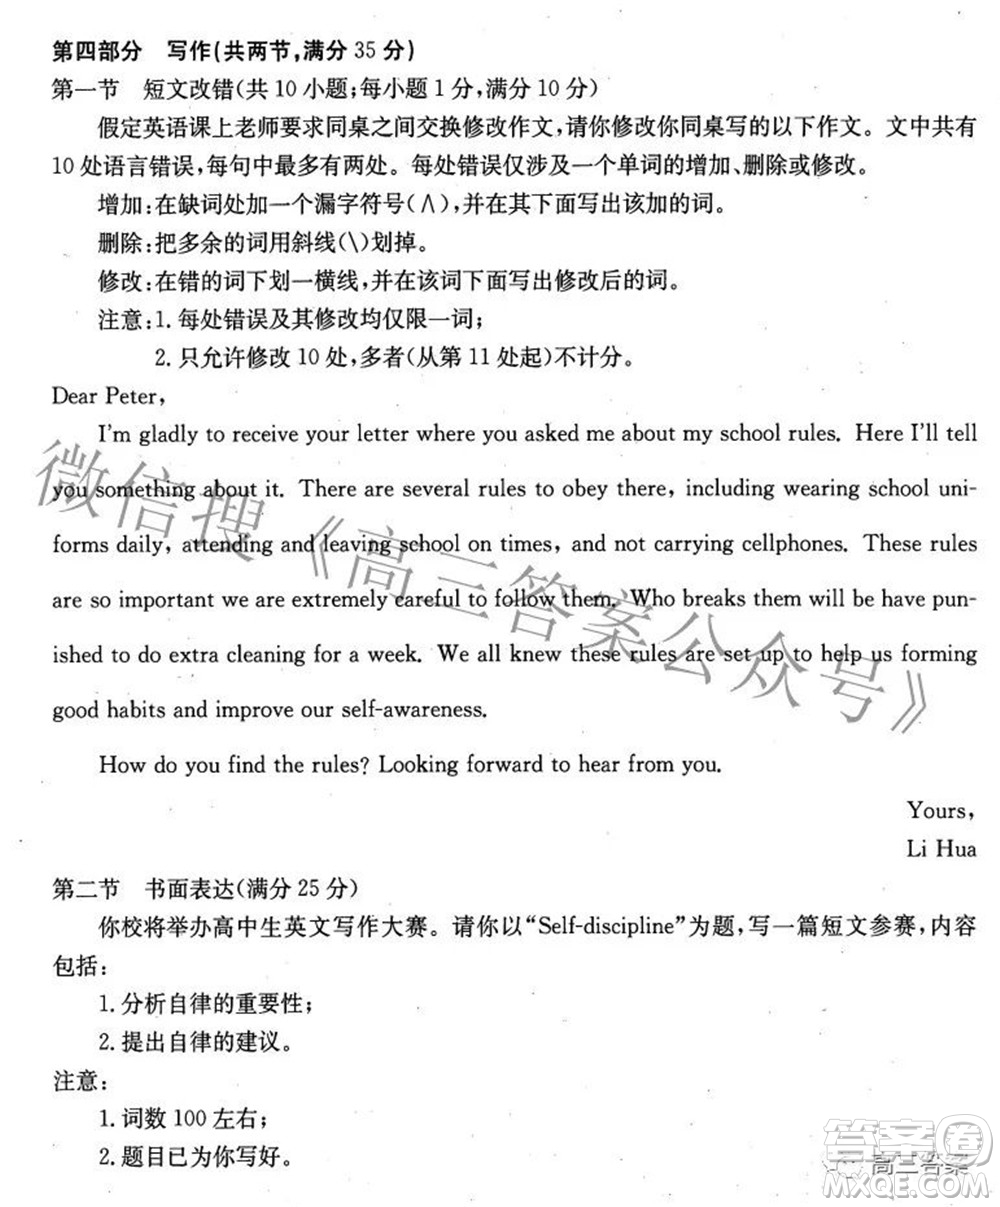 第四部分　写作(共两节,满分 35 分)
第一节　短文改错(共 10 小题;每小题 1 分,满分 10 分)
假定英语课上老师要求同桌之间交换修改作文,请你修改你同桌写的以下作文。文中共有
10 处语言错误,每句中最多有两处。每处错误仅涉及一个单词的增加、删除或修改。
增加:在缺词处加一个漏字符号(∧),并在其下面写出该加的词。
删除:把多余的词用斜线(\)划掉。
修改:在错的词下划一横线,并在该词下面写出修改后的词。
注意:1. 每处错误及其修改均仅限一词;
2. 只允许修改 10 处,多者(从第 11 处起)不计分。
Dear Peter,
I'm gladly to receive your letter where you asked me about my school rules. Here I'll tell
you something about it. There are several rules to obey there, including wearing school uni-
forms daily, attending and leaving school on times, and not carrying cellphones. These rules
are so important we are extremely careful to follow them. Who breaks them will be have pun-
ished to do extra cleaning for a week. We all knew these rules are set up to help us forming
good habits and improve our self-awareness.
How do you find the rules? Looking forward to hear from you.
Yours,
Li Hua
第二节　书面表达(满分 25 分)
你校将举办高中生英文写作大赛。请你以“Self-discipline”为题,写一篇短文参赛,内容
包括:
1. 分析自律的重要性;
2. 提出自律的建议。
注意:
1. 词数 100 左右;
2. 题目已为你写好。
微信搜《高三答案公众号》
答案卷
高三答案
MXQE.COM